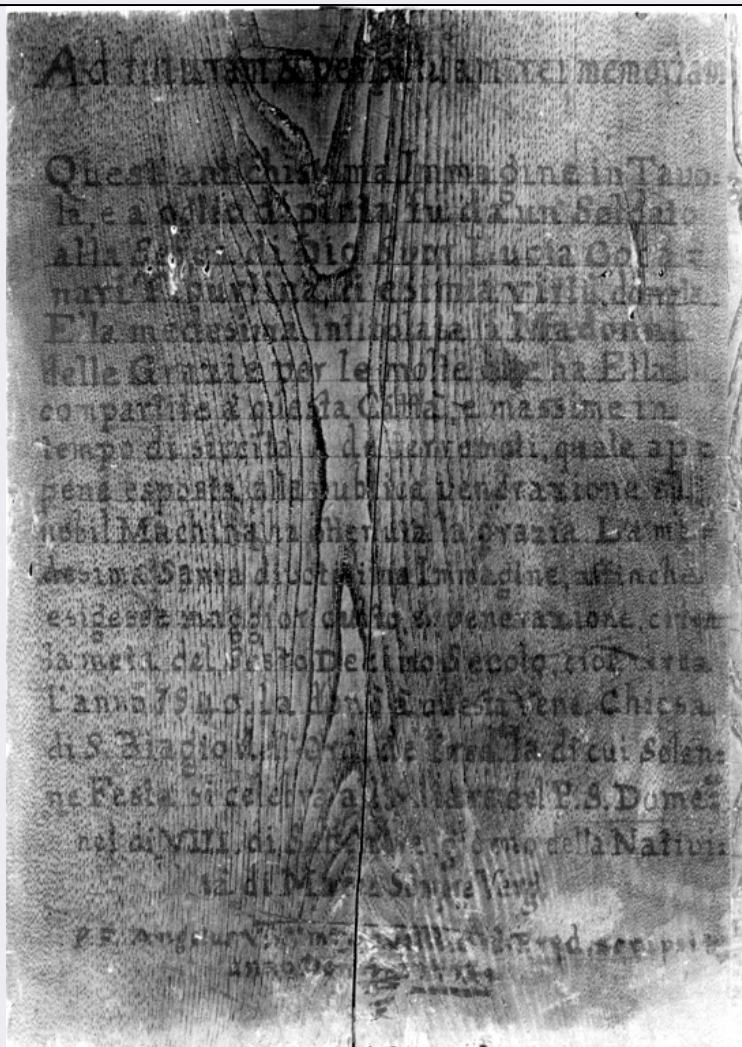 Ad futuram & perpetuam rei memoriam
Quest' antichissima Immagine in Tavo=
la, e a oglio dipenta fu da un Soldato
alla Serva di Dio Suor Lucia
Tiburtina, di esimia virtù, donata.
E' la medesima intitolata la Madonna
delle Grazie per le molte che ha Ella
compartite a questa Città, e massime in
tempo di siccità, e de Terremoti, quale ap=
pena esposta alla publica venerazione in
nobil Machina ha ottenuta la grazia. La me=
desima Santa divotissima Immagine, affinche
esigesse maggior culto, e venerazione, circa
la metà del Sesto Decimo Secolo, cioè circa
L'anno 1540, la donò a questa Vene. Chiesa
di S. Biagio dell' Ord. de Pred. la di cui Solen=
ne Festa si celebra all' Altare del P. S. Dome=
nel di VIII. di Settembre, giorno della Nativi=
tà di Maria Sempre Verg.
P. F. Angelus Pred. scripsit
anno